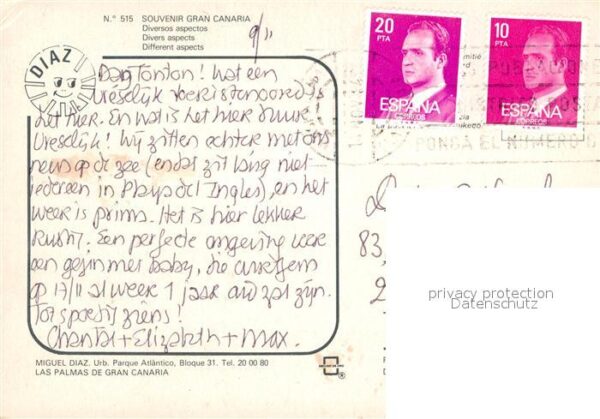 N.° 515 SOUVENIR GRAN CANARIA
Diversos aspectos
Divers aspects
Different aspects
9/11
DIAZ
Dag Tonton! Wat een
vreselijk toeristenoord is
het hier. En wat is het hier duur!
Vreselijk! Wij zitten achter met ons
neus op de zee (en dat zit lang niet
iedereen in Playa del Ingles), en het
weer is prima. Het is hier lekker
rustig. Een perfecte omgeving voor
een gezin met baby, die
op 17/11 al weer 1 jaar oud zal zijn.
Tot spoedig ziens!
Chantal + Elizabeth + Max.
MIGUEL DIAZ. Urb. Parque Atlántico, Bloque 31. Tel. 20 00 80
LAS PALMAS DE GRAN CANARIA
20
PTA
ESPAÑA
CORREOS
10
PTA
ESPAÑA
CORREOS
PONGA EL NUMERO D
83,
2
privacy protection
Datenschutz
®